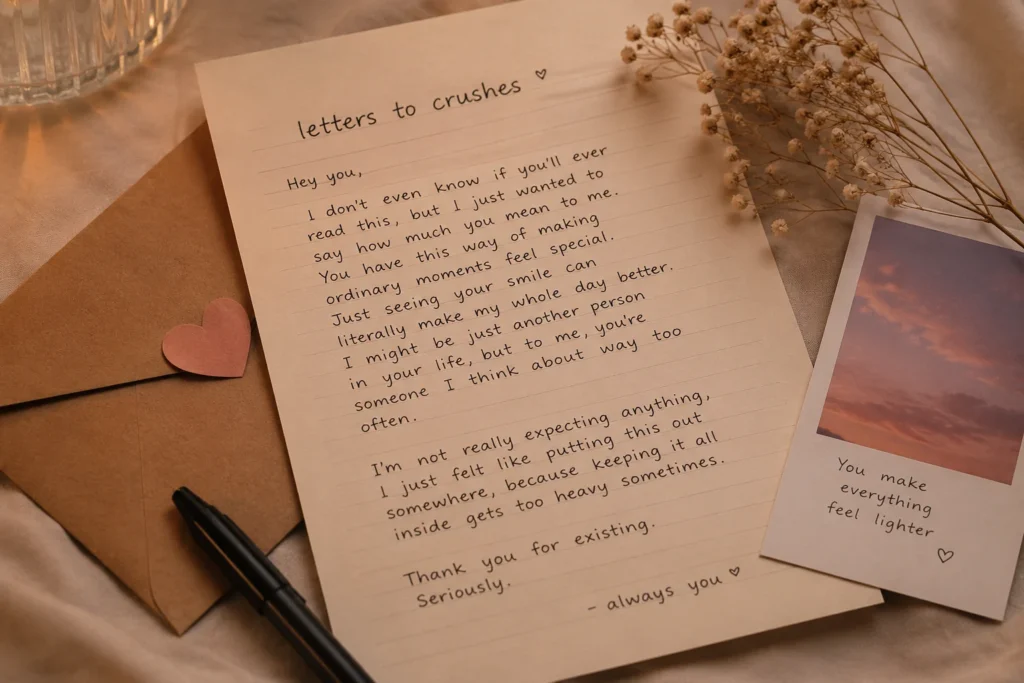 letters to crushes ♡
Hey you,
I don't even know if you'll ever
read this, but I just wanted to
say how much you mean to me.
You have this way of making
ordinary moments feel special.
Just seeing your smile can
literally make my whole day better.
I might be just another person
in your life, but to me, you're
someone I think about way too
often.
I'm not really expecting anything,
I just felt like putting this out
somewhere, because keeping it all
inside gets too heavy sometimes.
Thank you for existing.
Seriously.
- always you ♡
You make
everything
feel lighter
♡